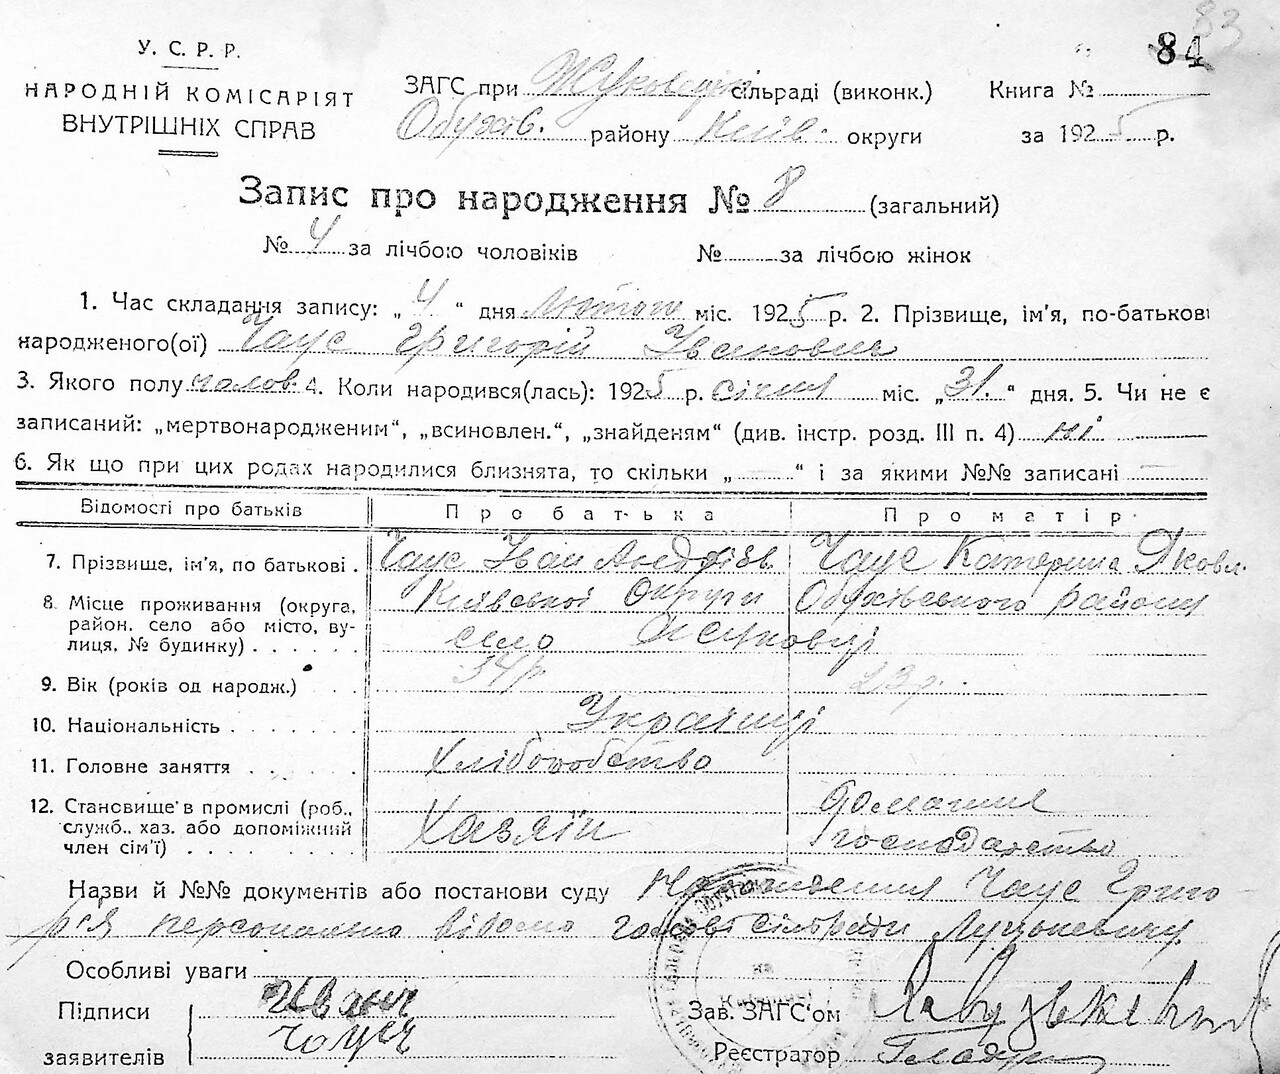 83
84
У. С. Р. Р.
НАРОДНІЙ КОМІСАРІЯТ
ВНУТРІШНІХ СПРАВ
ЗАГС при сільраді (виконк.) Книга №
Обухів. району Київ. округи за 1925 р.
Запис про народження № 8 (загальний)
№ 4 за лічбою чоловіків № за лічбою жінок
1. Час складання запису: „4“ дня Лютого міс. 1925 р. 2. Прізвище, ім'я, по-батькові
народженого(ої) Чаус Григорій Іванович
3. Якого полу чолов. 4. Коли народився(лась): 1925 р. січня міс. „31.“ дня. 5. Чи не є
записаний: „мертвонародженим“, „всиновлен.“, „знайденям“ (див. інстр. розд. III п. 4) ні
6. Як що при цих родах народилися близнята, то скільки „ “ і за якими №№ записані
Відомості про батьків Про батька Про матір
7. Прізвище, ім'я, по батькові. Чаус Іван Андріїв. Чаус Катерина Яковл.
8. Місце проживання (округа, район, село або місто, вулиця, № будинку) Київської Округи Обухівського району
село
9. Вік (років од народж.) 34 р. 23 р.
10. Національність Українці
11. Головне заняття Хлібороство
12. Становище в промислі (роб., служб., хаз. або допоміжний член сім'ї) Хазяїн домашнє господарство
Назви й №№ документів або постанови суду Народження Чаус Григо-
рія персонально відомо голові сільради
Особливі уваги
Підписи заявителів Иван Чаус
Зав. ЗАГС'ом
Реєстратор